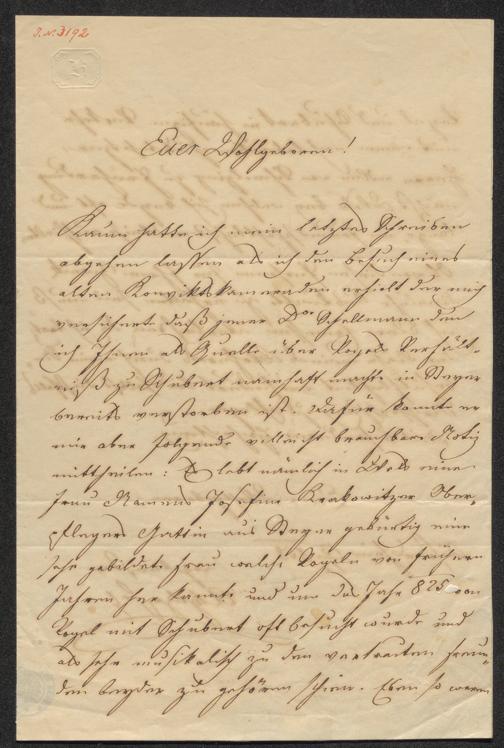 J.N. 3192
Euer Wohlgeboren!
Kaum hatte ich mein letztes Schreiben
abgehen lassen als ich den Besuch eines
alten Konviktskameraden erhielt der mich
versicherte daß jener Dor Schellmann den
ich Ihnen als Quelle über Vogls Verhält-
niß zu Schubert namhaft machte in Steyer
bereits verstorben ist. Dafür konnte er
mir aber folgende villeicht brauchbare Notiz
mittheilen: Es lebt nämlich in eine
Frau Namens Josefine Krakowitzer Ober-
pflegers Gattin aus Steyer gebürtig eine
sehr gebildete Frau welche Vogeln von frühern
Jahren her kannte und um das Jahr 825 von
Vogel mit Schubert oft besucht wurde und
als sehr musikalisch zu den vertrauten Freun-
den beyder zu gehören schien. Eben so waren